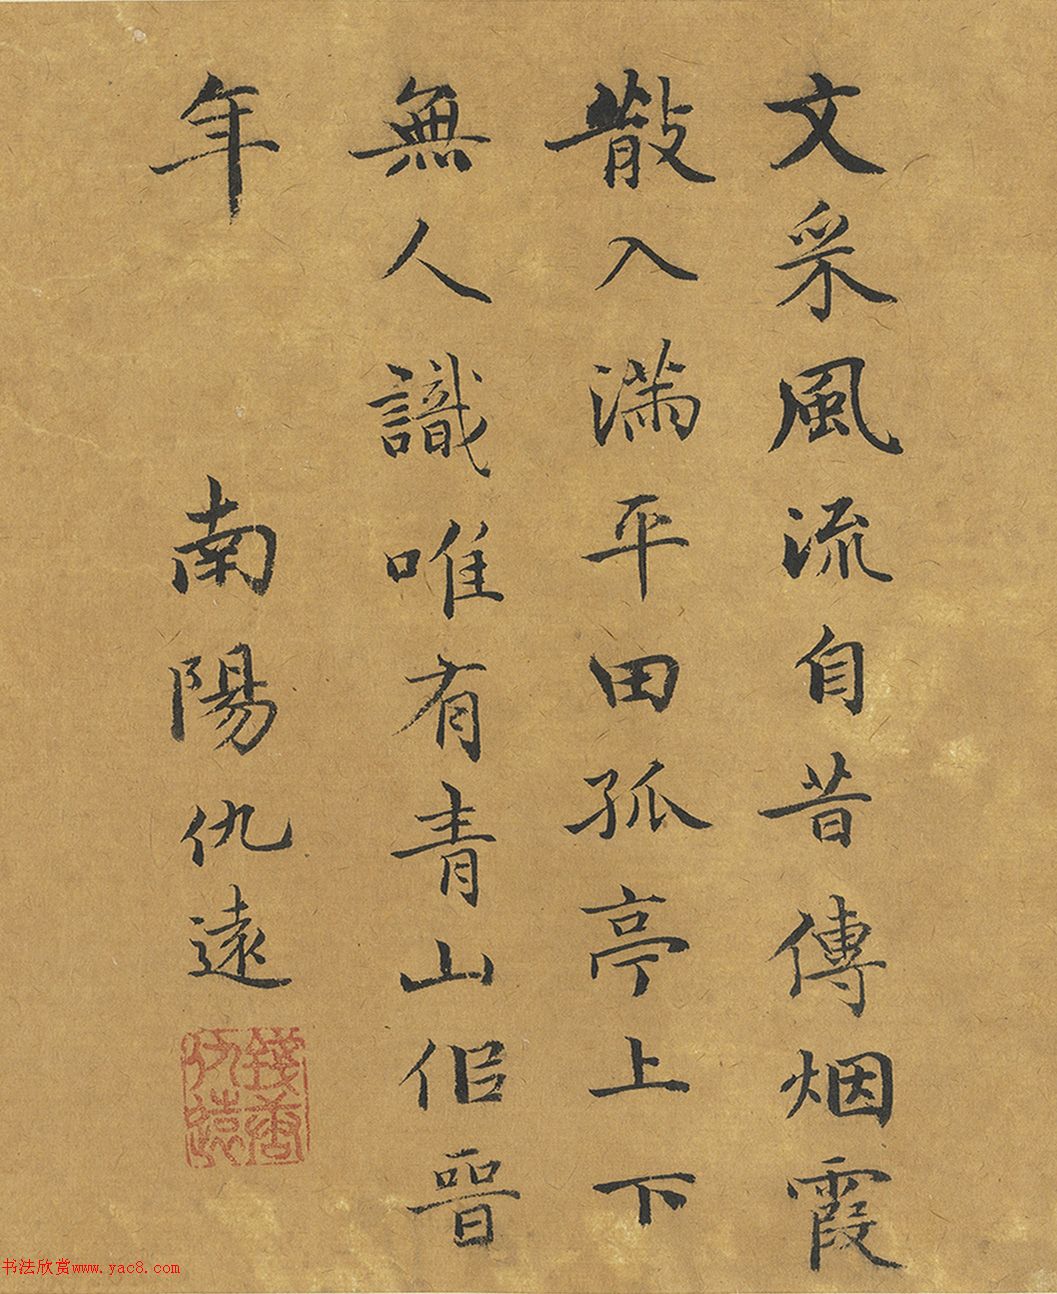 文采風流自昔傳烟霞
散入滿平田孤亭上下
無人識唯有青山似晉
年
南陽仇遠
錢唐
仇遠
书法欣赏www.yac8.com